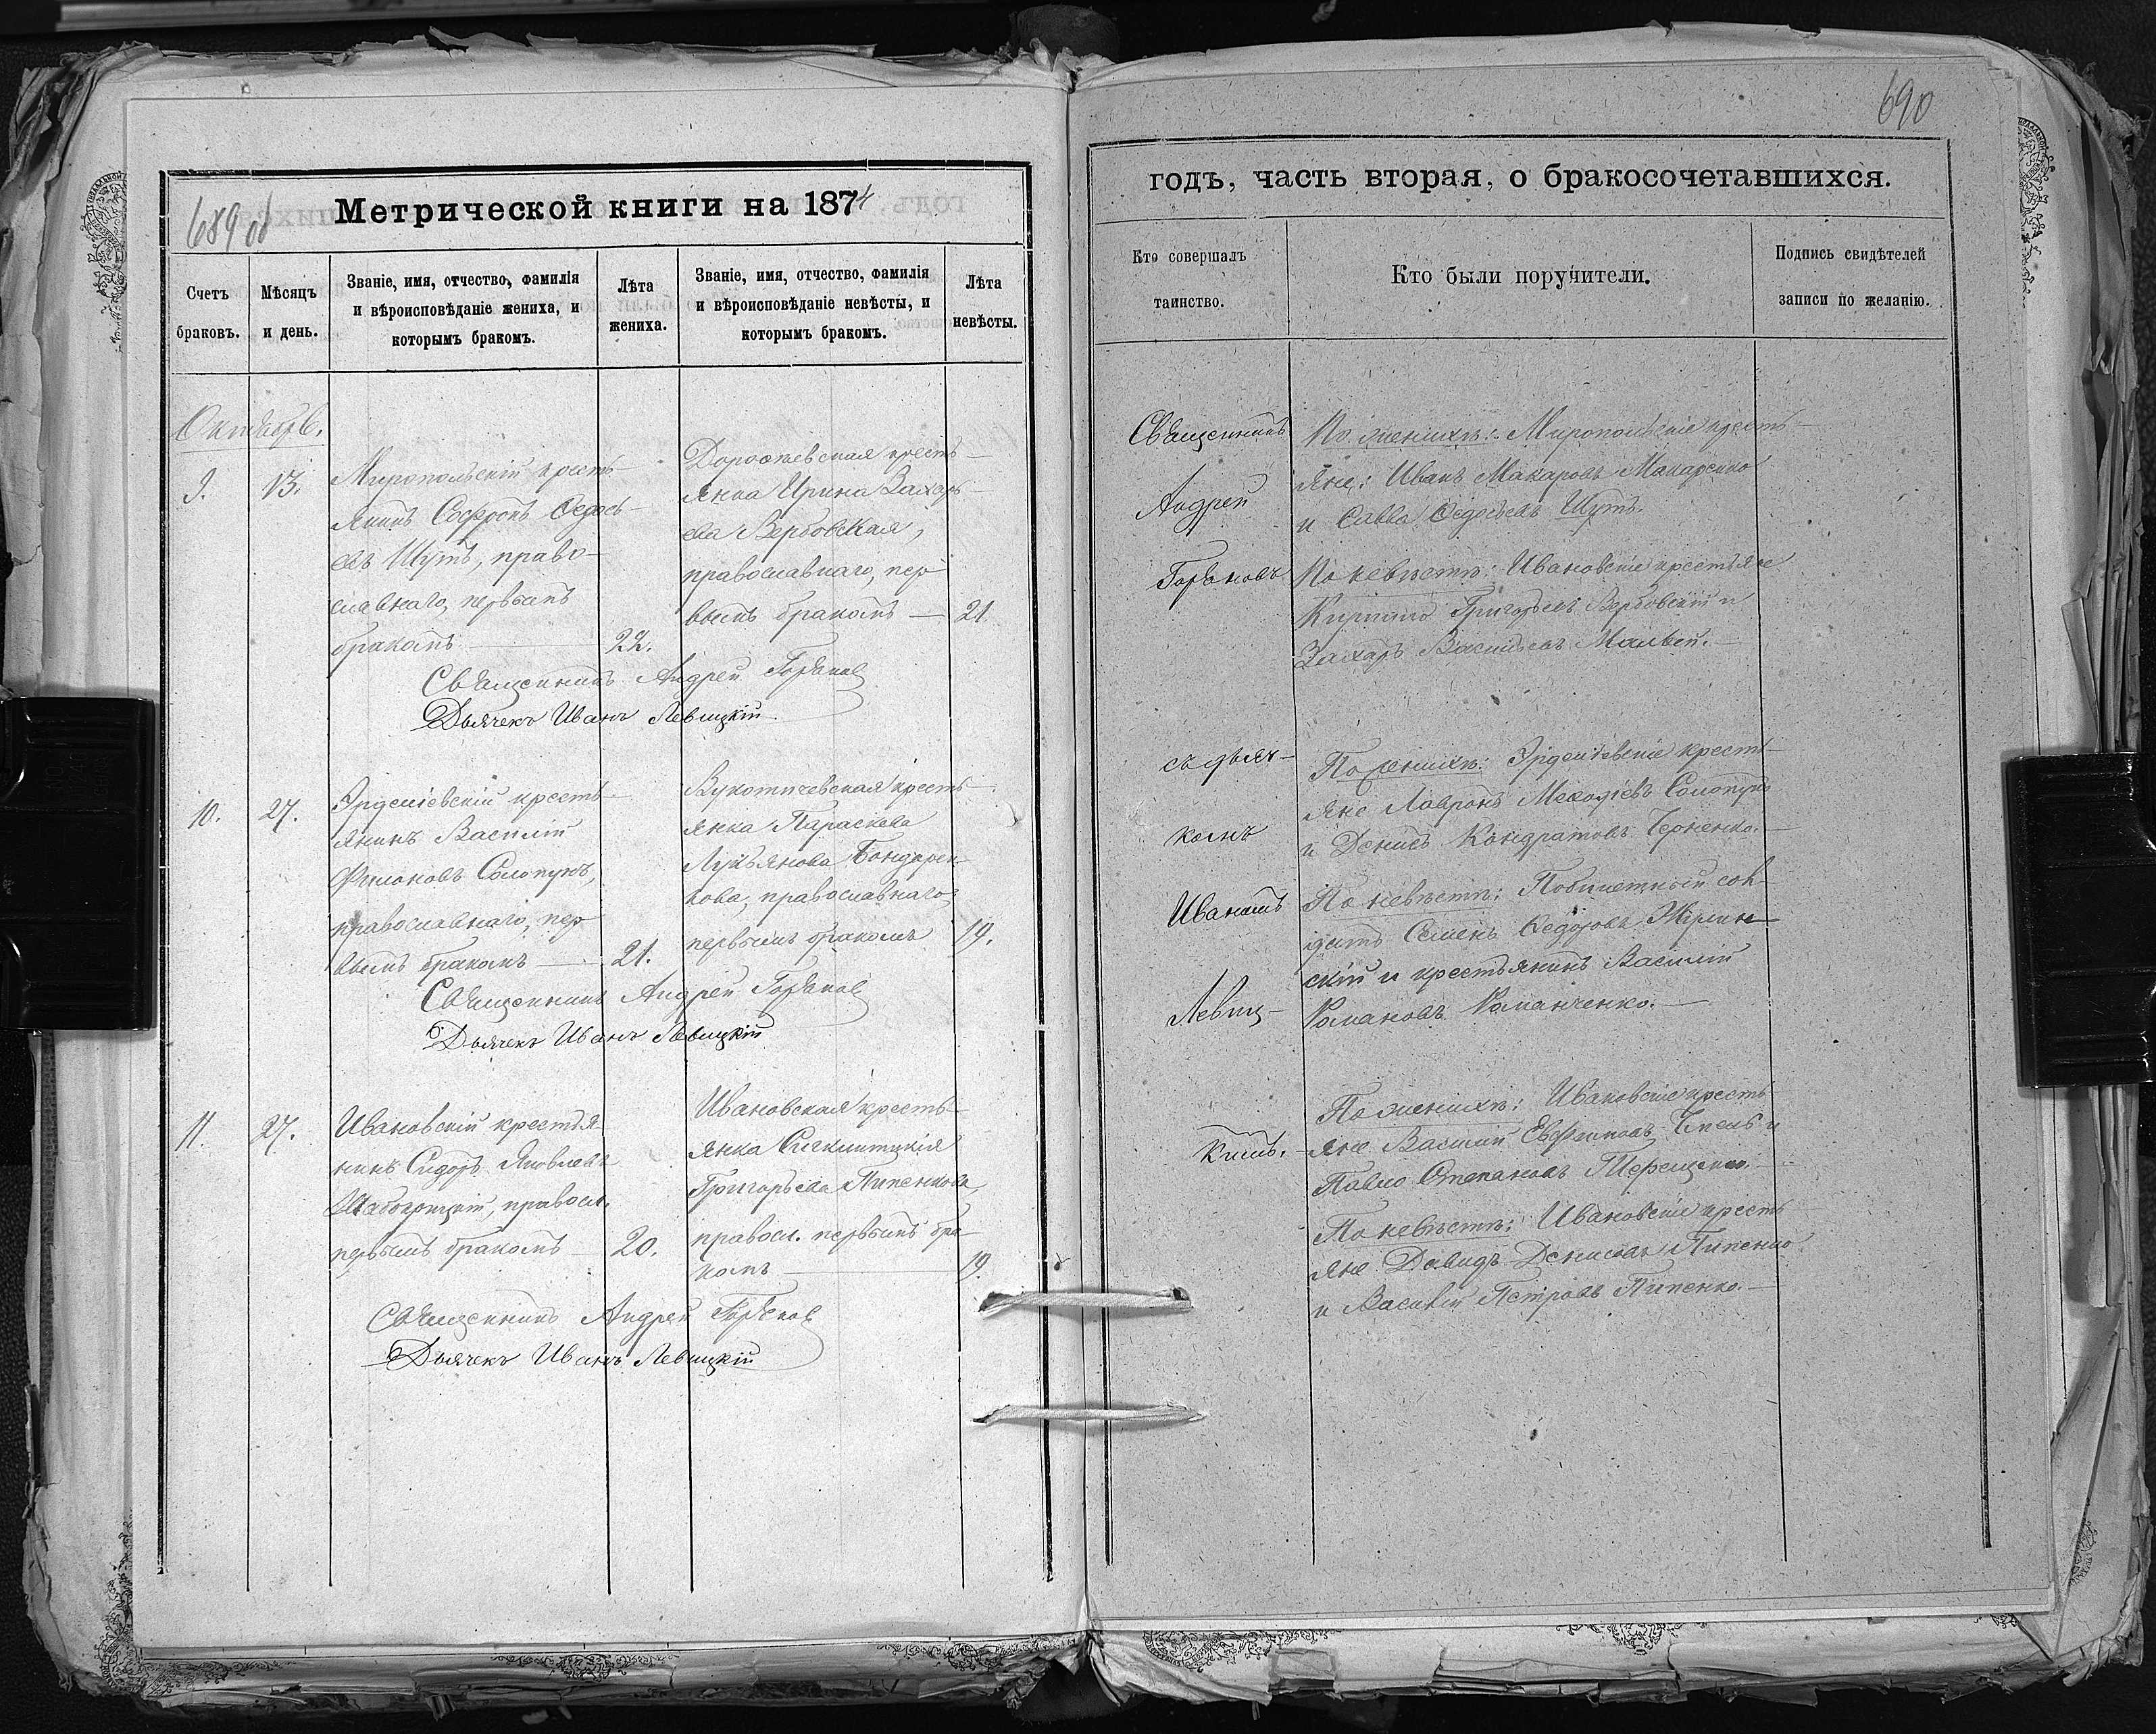 689 об
Метрической книги на 1874
Счетъ браковъ.
Мѣсяцъ и день.
Званіе, имя, отчество, фамилія
и вѣроисповѣданіе жениха, и
которымъ бракомъ.
Лѣта
жениха.
Званіе, имя, отчество, фамилія
и вѣроисповѣданіе невѣсты, и
которымъ бракомъ.
Лѣта
невѣсты.
Октябрь.
9.
13.
Миропольскій кресть-
янинъ Софронъ Ѳедось-
евъ Шутъ, право-
славнаго, первымъ
бракомъ — 22.
янка Ирина Захарь-
ева Вербовская,
православнаго, пер-
вымъ бракомъ — 21.
Священникъ Андрей
Дьячекъ Иванъ Левицкій.
10.
27.
крестья-
янинъ Василій
Филоновъ Солопукъ,
православнаго, пер-
вымъ бракомъ — 21.
кресть-
янка Параскева
Лукьянова Бондарен-
кова, православнаго,
первымъ бракомъ 19.
Священникъ Андрей
Дьячекъ Иванъ Левицкій
11.
27.
Ивановскій крестья-
нинъ Сидоръ Яковлевъ
правосл.
первымъ бракомъ — 20.
Ивановская кресть-
янка
Григорьева Пипенкова,
правосл. первымъ бра-
комъ — 19.
Священникъ Андрей
Дьячекъ Иванъ Левицкій
690
годъ, часть вторая, о бракосочетавшихся.
Кто совершалъ
таинство.
Кто были поручители.
Подпись свидѣтелей
записи по желанію.
Священникъ
Андрей
съ дьяч-
комъ
Иваномъ
Левиц-
кимъ.
По женихѣ: Миропольскіе кресть-
яне: Иванъ Макаровъ Макаренко
и Савва Ѳедосьевъ Шутъ.
По невѣстѣ: Ивановскіе крестьяне
Кирилло Григорьевъ Вербовскій и
Захаръ Васильевъ
По женихѣ: кресть-
яне Солопукъ
и Денисъ Кондратовъ Черненко.
По невѣстѣ: сол-
датъ Семенъ Ѳедоровъ
скій и крестьянинъ Василій
Романовъ Романченко. —
По женихѣ: Ивановскіе кресть-
яне Василій
Павло Степановъ Терещенко. —
По невѣстѣ: Ивановскіе кресть-
яне Давидъ Денисовъ Пипенко
и Василій Петровъ Пипенко. —